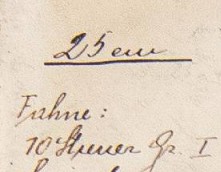 25 em
Fahne:
10 Steuer Gr. I